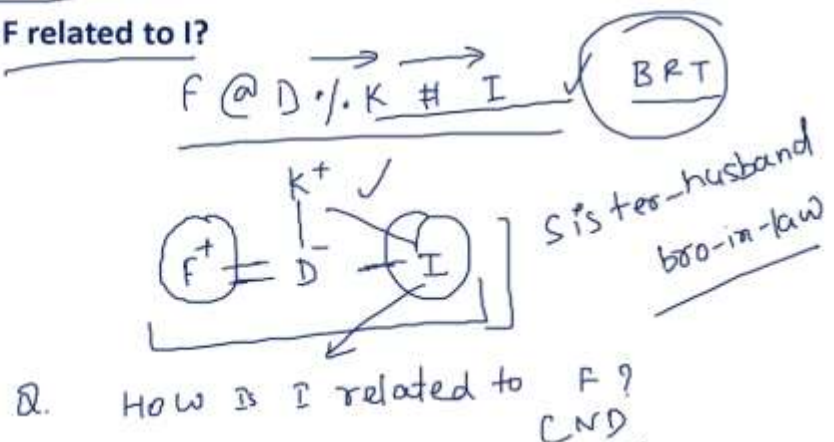 F related to I?
F @ D % K # I BRT
K+
F+ = D- - I
Sister-husband
bro-in-law
Q. How Is I related to F?
CND